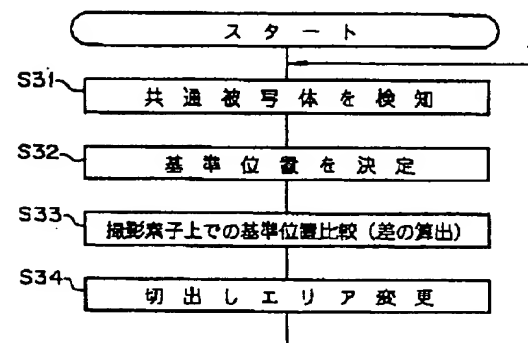 スタート
S31 共通被写体を検知
S32 基準位置を決定
S33 撮影素子上での基準位置比較（差の算出）
S34 切出しエリア変更